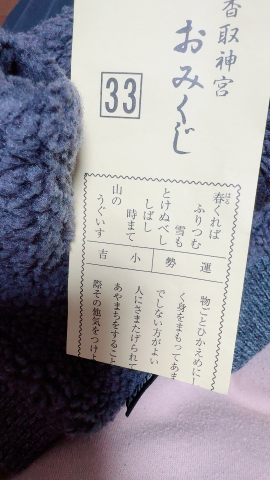 香取神宮
おみくじ
33
春くれば
はる
ふりつむ
雪も
とけぬべし
しばし
時まて
山の
うぐいす
運勢
小吉
物ごとひかえめにし
く身をまもってあま
でしない方がよい
人にさまたげられて
あやまちをすること
際その他気をつけよ